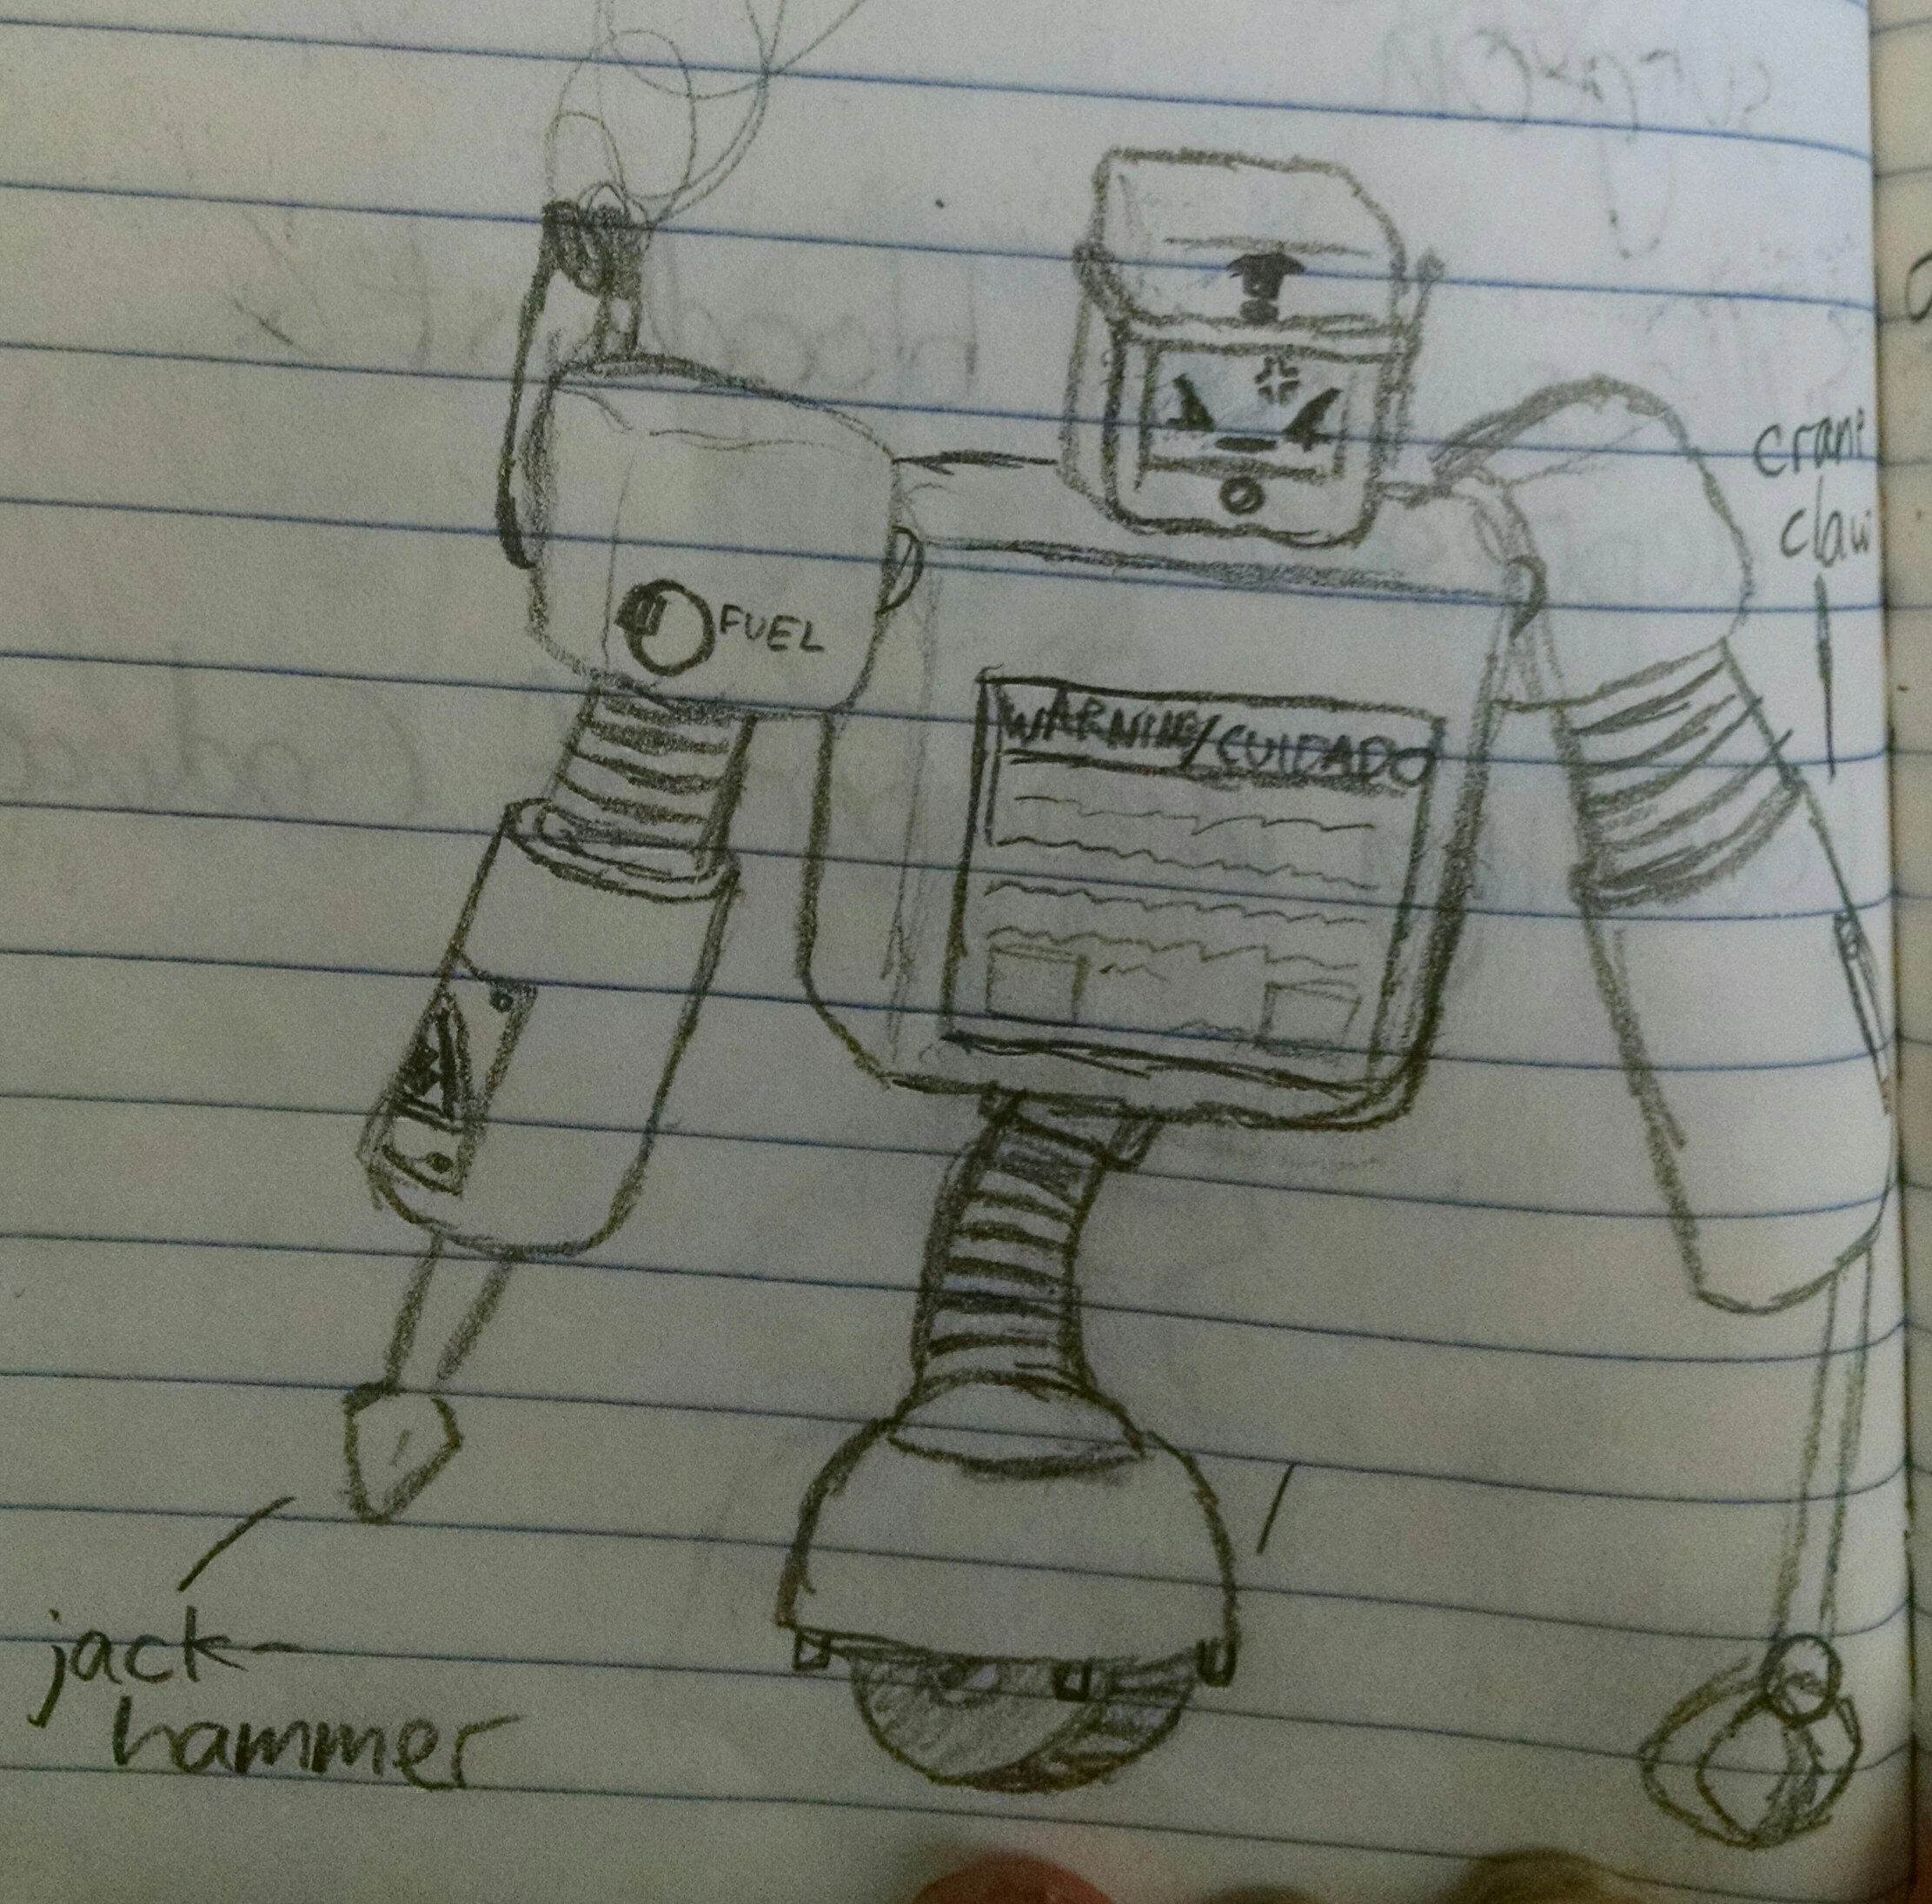 crane
claw
FUEL
WARNING/CUIDADO
jack-
hammer